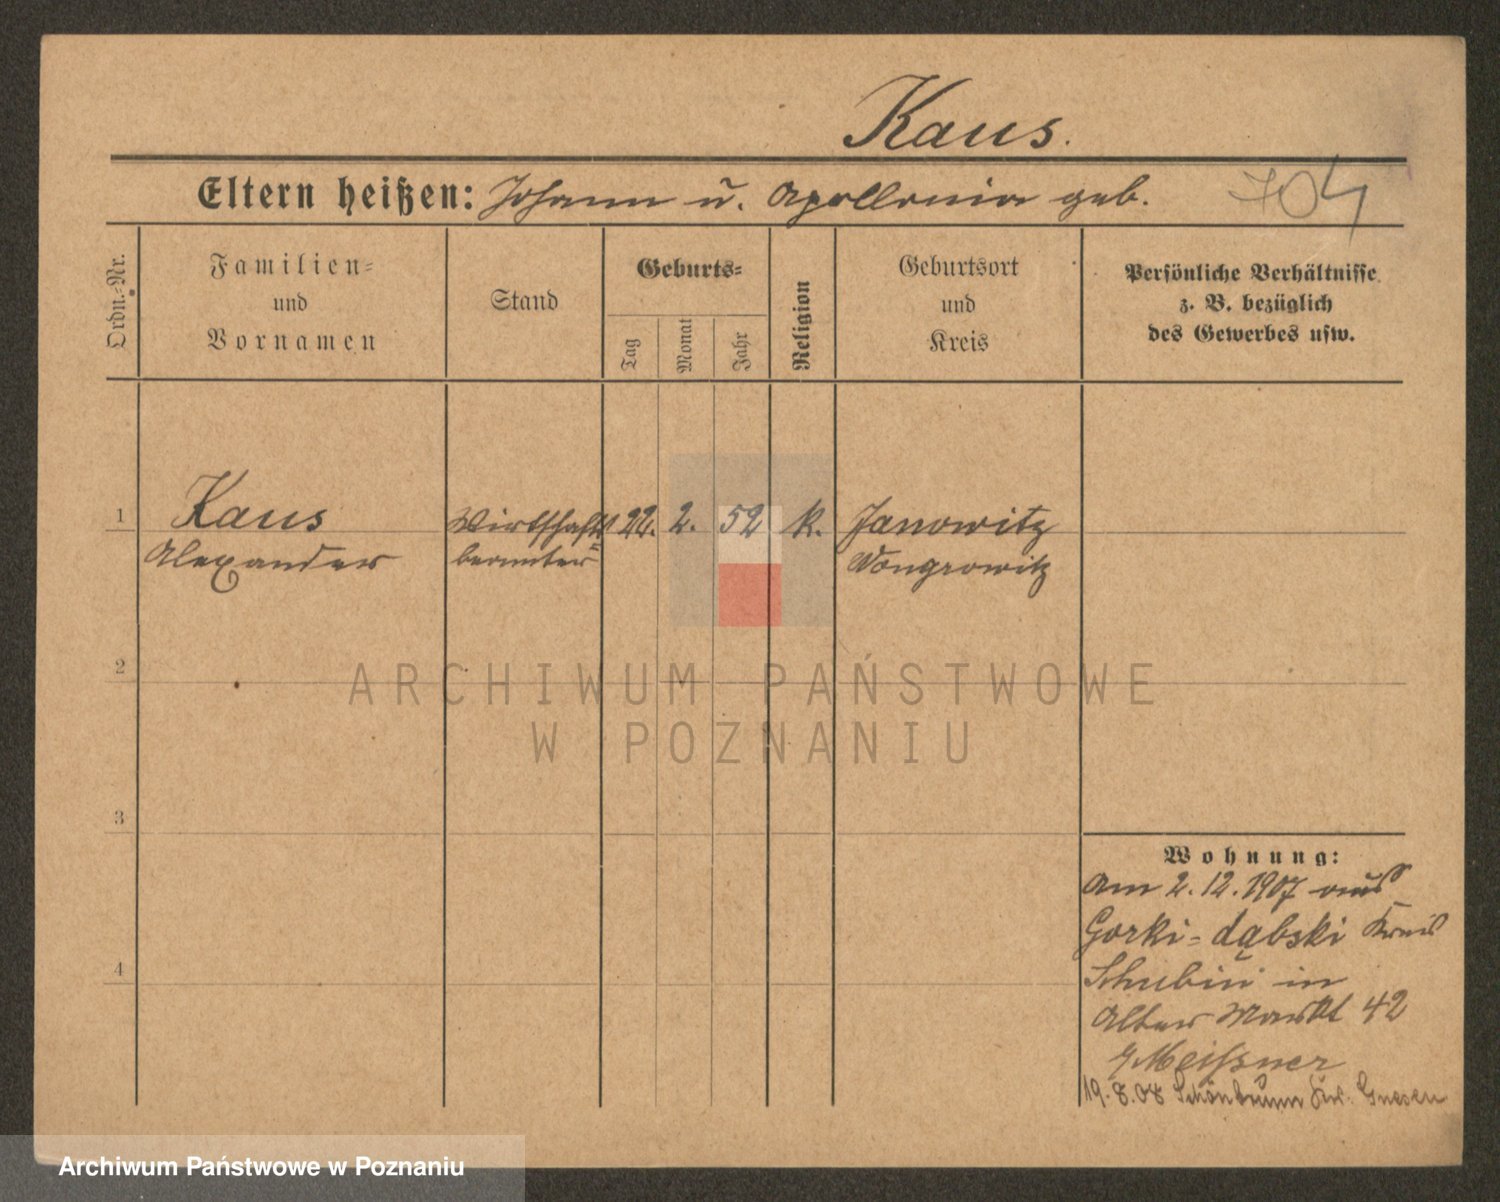 Kaus.
Eltern heißen: Johann u. Apollonia geb.
704
Ordn.-Nr.
Familien-
und
Vornamen
Stand
Geburts-
Tag
Monat
Jahr
Religion
Geburtsort
und
Kreis
Persönliche Verhältnisse
z. B. bezüglich
des Gewerbes usw.
1 Kaus Wirtschafts 22. 2. 52 k. Janowitz
Alexander beamter Wongrowitz
2
ARCHIWUM PAŃSTWOWE
W POZNANIU
3
Wohnung:
Am 2.12.1907 aus
Gorki-dąbski Kreis
4
Schubin in
Alter Markt 42
Meißner
19.8.08 Schönbrunn Kr. Gnesen
Archiwum Państwowe w Poznaniu